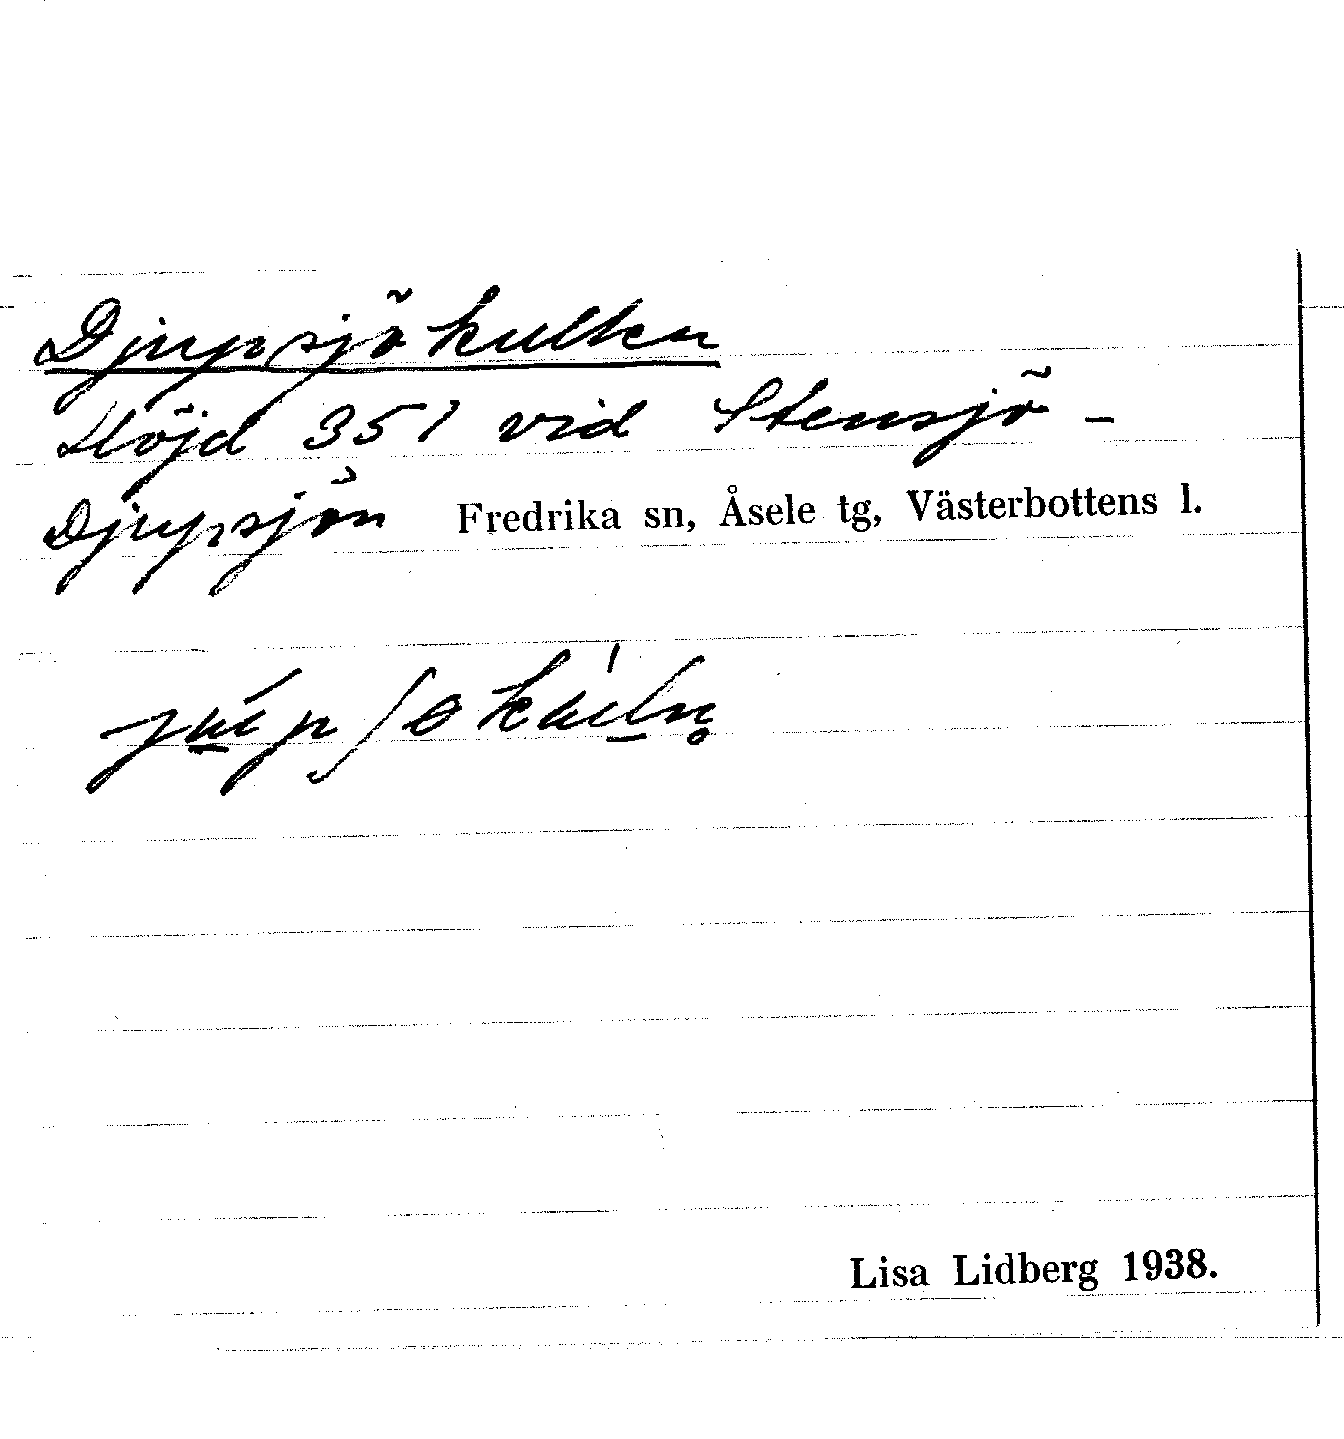 Djupsjökullen
Höjd 351 vid Stensjö-
Djupsjön Fredrika sn, Åsele tg, Västerbottens l.
Lisa Lidberg 1938.